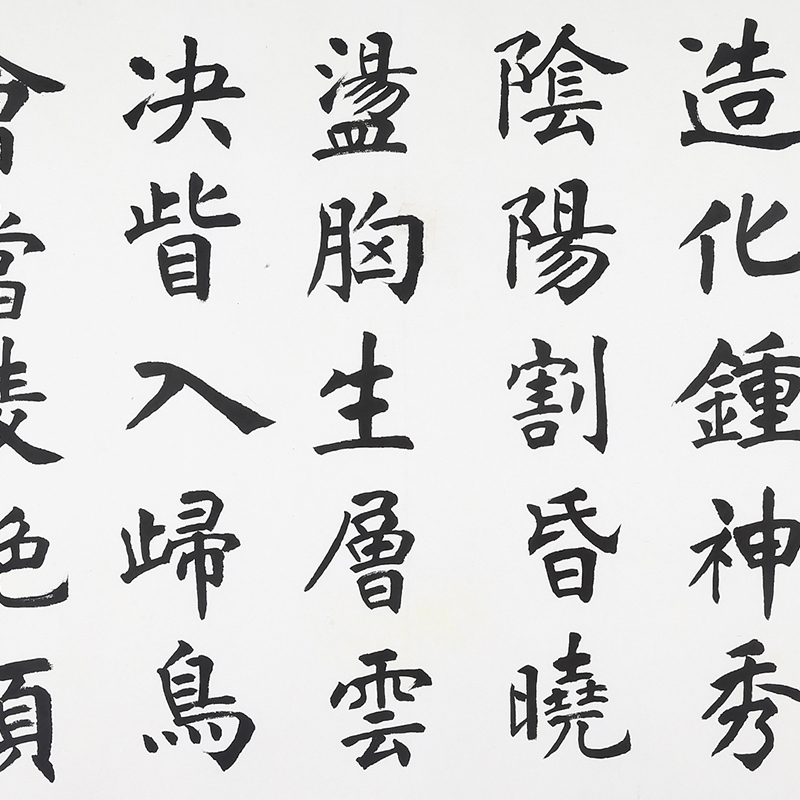 造化鍾神秀
陰陽割昏曉
盪胸生層雲
决眥入歸鳥
會當凌絕頂